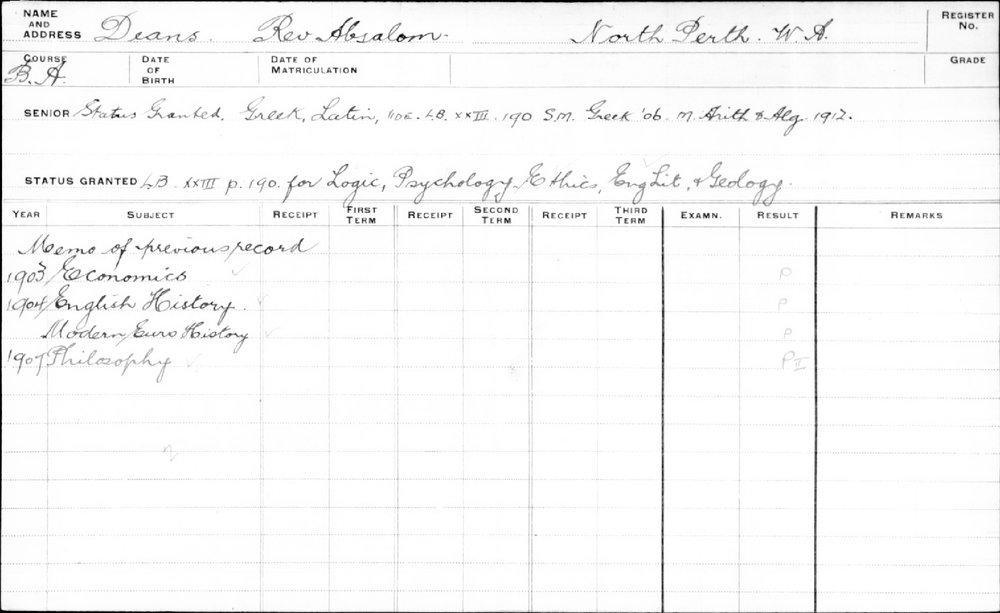 NAME AND ADDRESS Deans. Rev Absalom. North Perth. W. A. REGISTER No.
COURSE B. A. DATE OF BIRTH DATE OF MATRICULATION GRADE
SENIOR Status Granted. Greek, Latin, LB. XXIII. 190 S.M. Greek '06. M. Arith & Alg. 1912.
STATUS GRANTED LB XXIII p. 190. for Logic, Psychology, Ethics, Eng Lit, & Geology.
YEAR SUBJECT RECEIPT FIRST TERM RECEIPT SECOND TERM RECEIPT THIRD TERM EXAMN. RESULT REMARKS
Memo of previous record
1903 Economics P
1904 English History. P
Modern Euro History P
1907 Philosophy P II